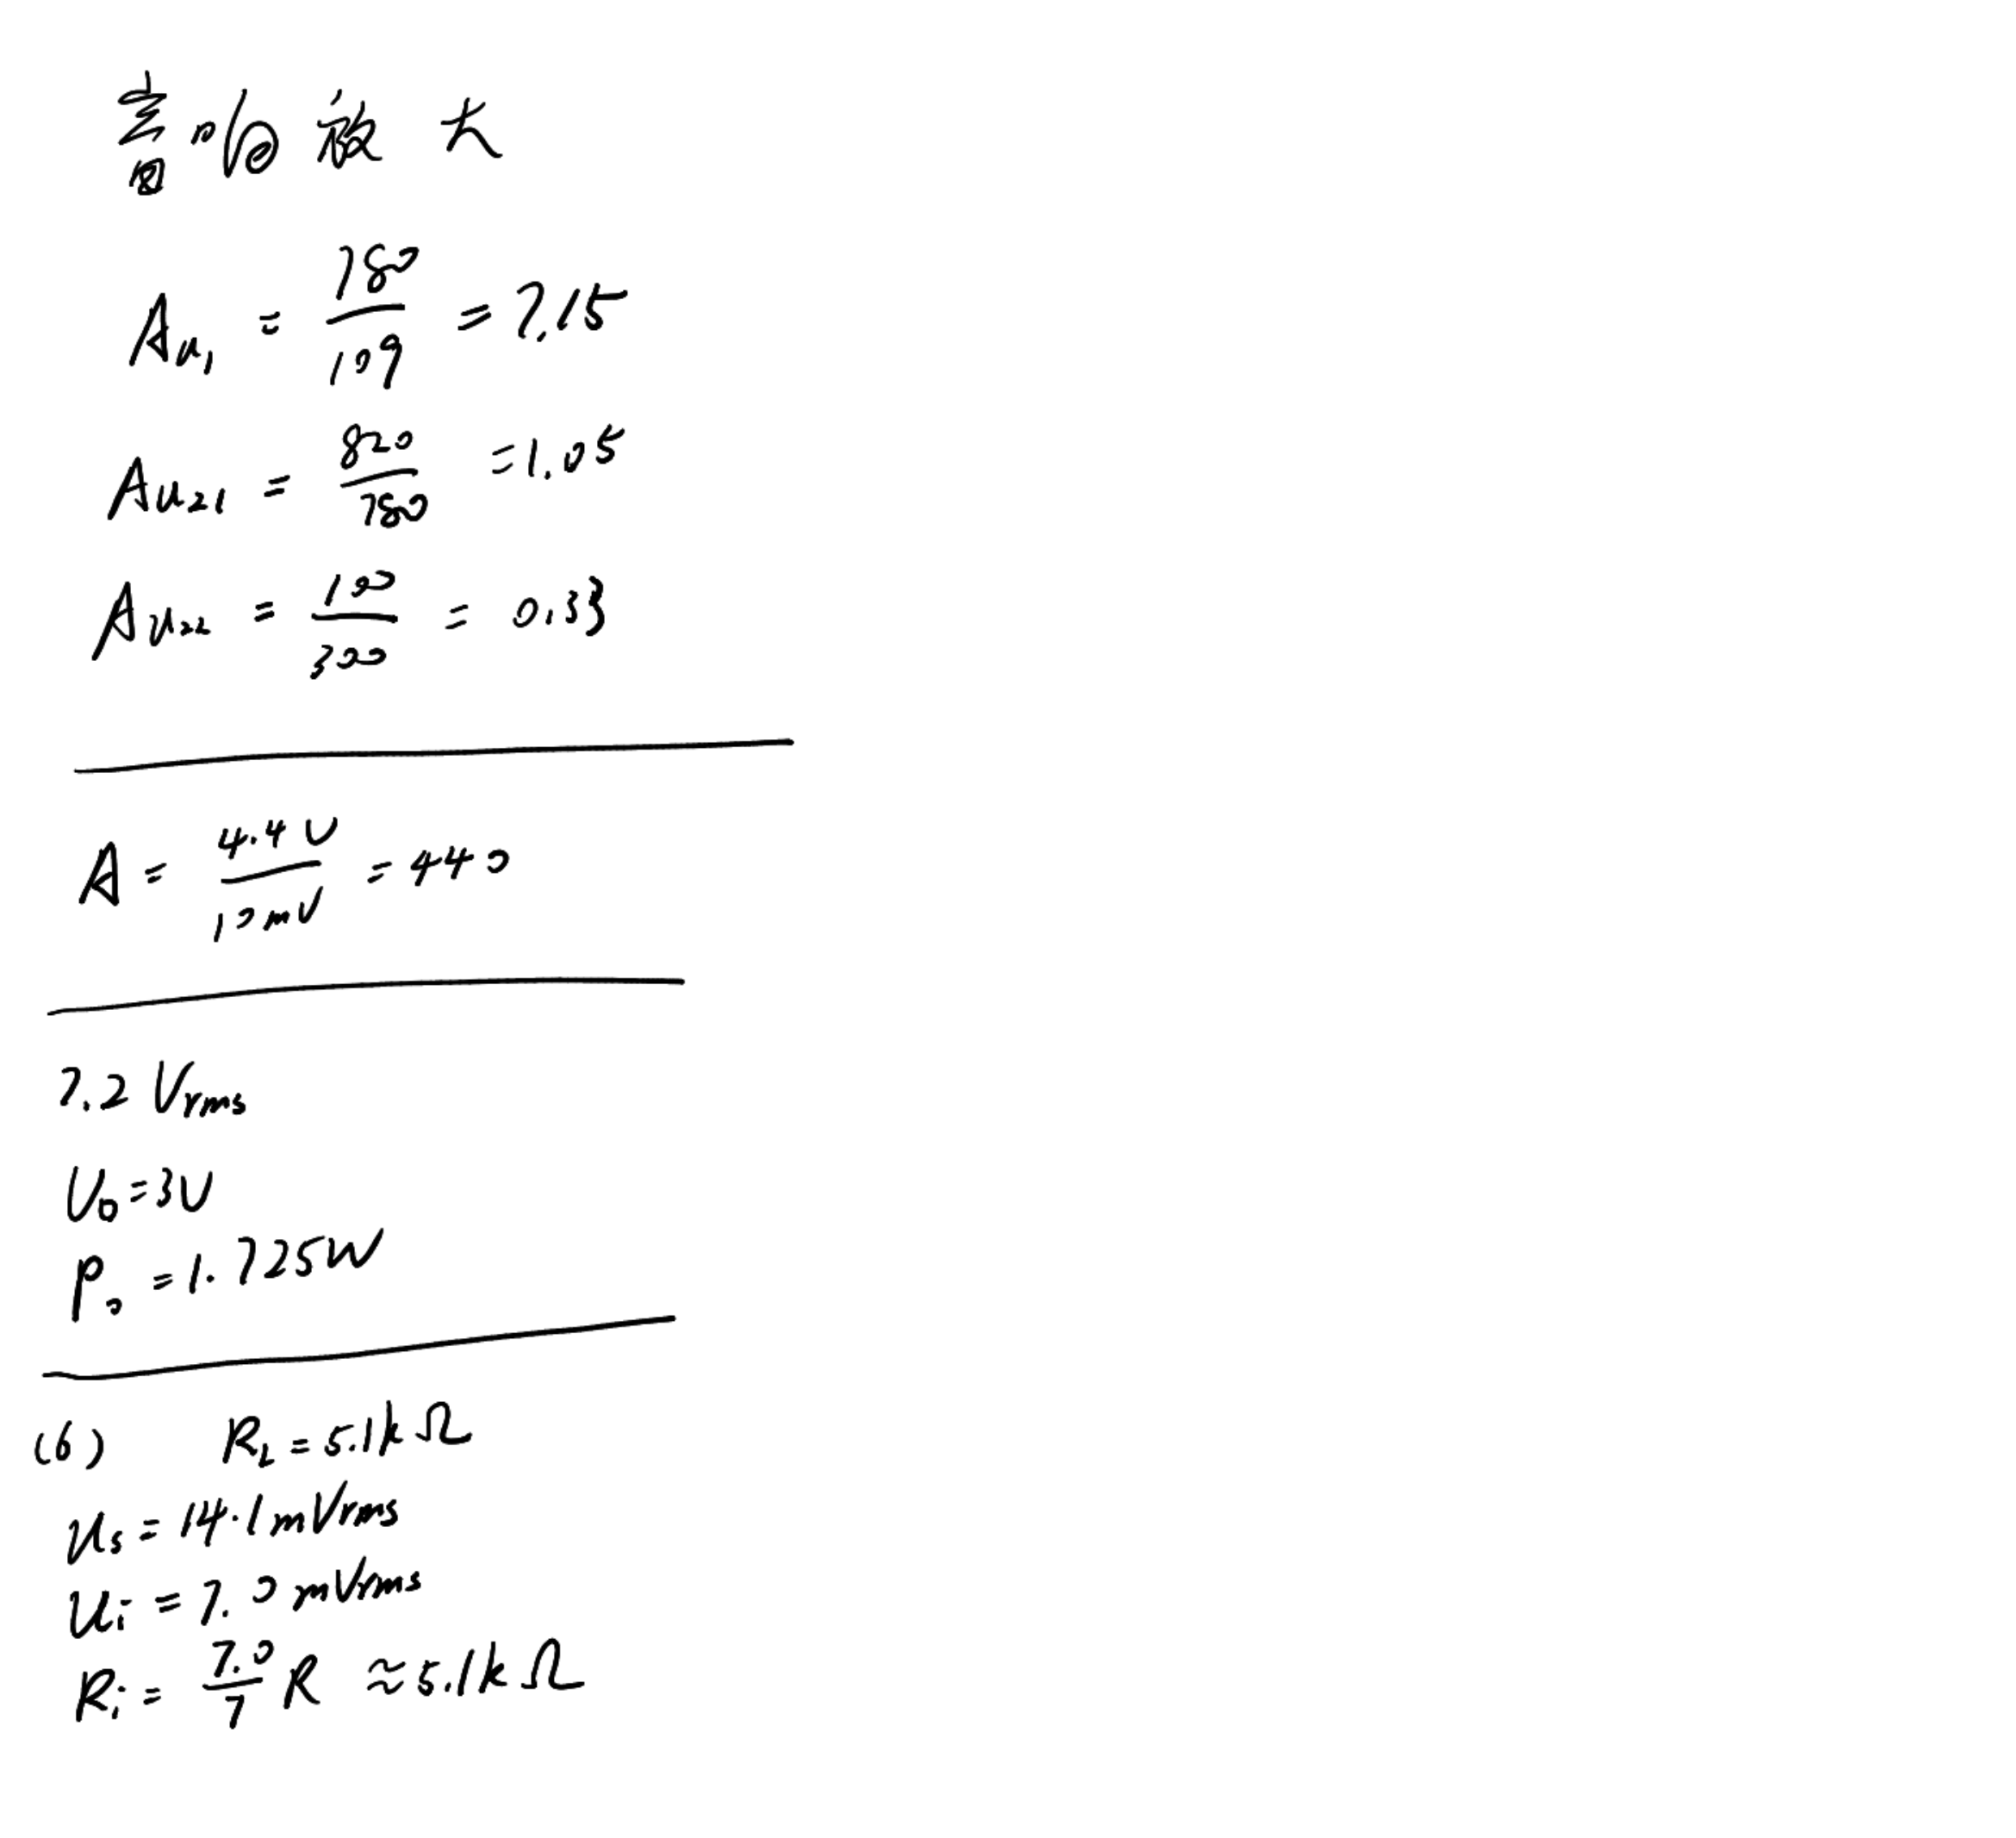 音响放大
Au₁ = 780/109 = 7.15
Au₂₁ = 820/780 = 1.05
Au₂₂ = 100/300 = 0.33
A = 4.4V/10mV = 440
7.2 Vrms
U₀=3V
P₀ =1.725W
(6) R_L = 5.1kΩ
Us = 14.1mVrms
Ui = 7.0 mVrms
Ri = 7.0/7 R ≈ 5.1kΩ